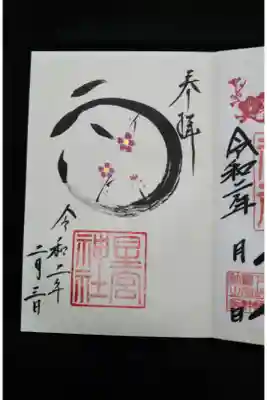 奉拝
星宮
神社
令和二年
二月三日
令和二年
月
日